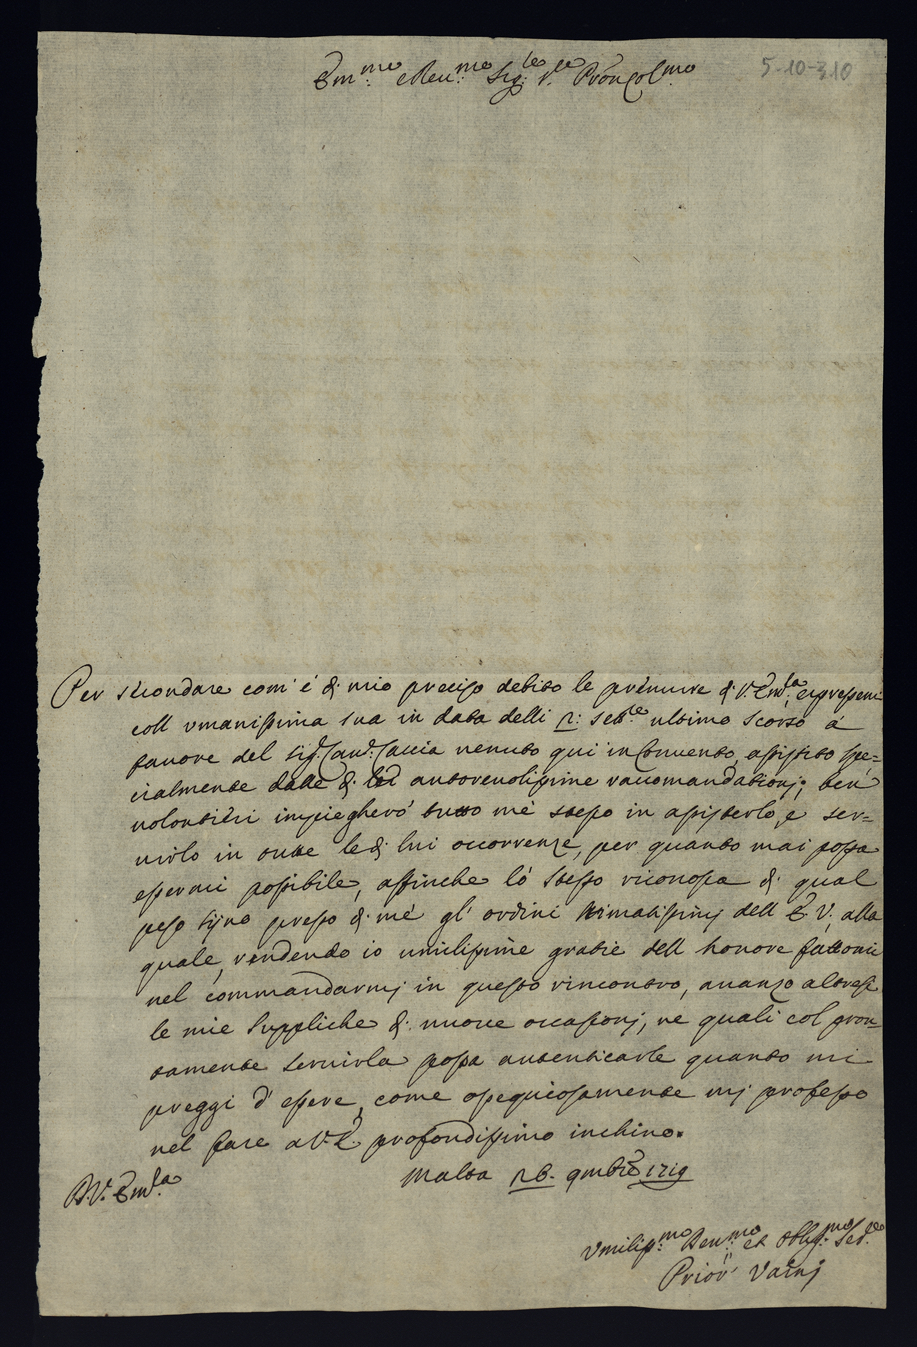 Em:mo e Reu:mo Sig:re P.re Pron Col:mo
5-10-310
Per secondare com' é di mio preciso debito le premure di V: Em.za, espressemi
coll vmanissima sua in data delli 2: setb.re ultimo scorso á
fauore del Sig.r Cau.r Caccia uenuto qui in Conuento, assistito spe=
cialmente dalle di lei autoreuolissime raccomandationj; ben
uolontiéri impiegheró tutto mé stesso in assisterlo, e ser=
uirlo in tutte le di lui occorrenze, per quanto mai possa
essermi possibile, affinche ló stesso riconosca di qual
peso sijno presso di mé gl' ordini stimatissimj dell E. V. alla
quale, rendendo io umilissime gratie dell honore fattomi
nel commandarmj in questo rincontro, auanzo altresi
le mie suppliche di nuoue occasionj, ne quali col pron=
tamente seruirla possa autenticarle quanto mi
preggi d' essere, come ossequiosamente mj professo
nel fare a V. E. profondissimo inchino.
Malta 26. 9mbre 1719
D. V. Em.za
Vmiliss:mo Deu:mo et Obblig:mo Ser.re
Prior Vainj